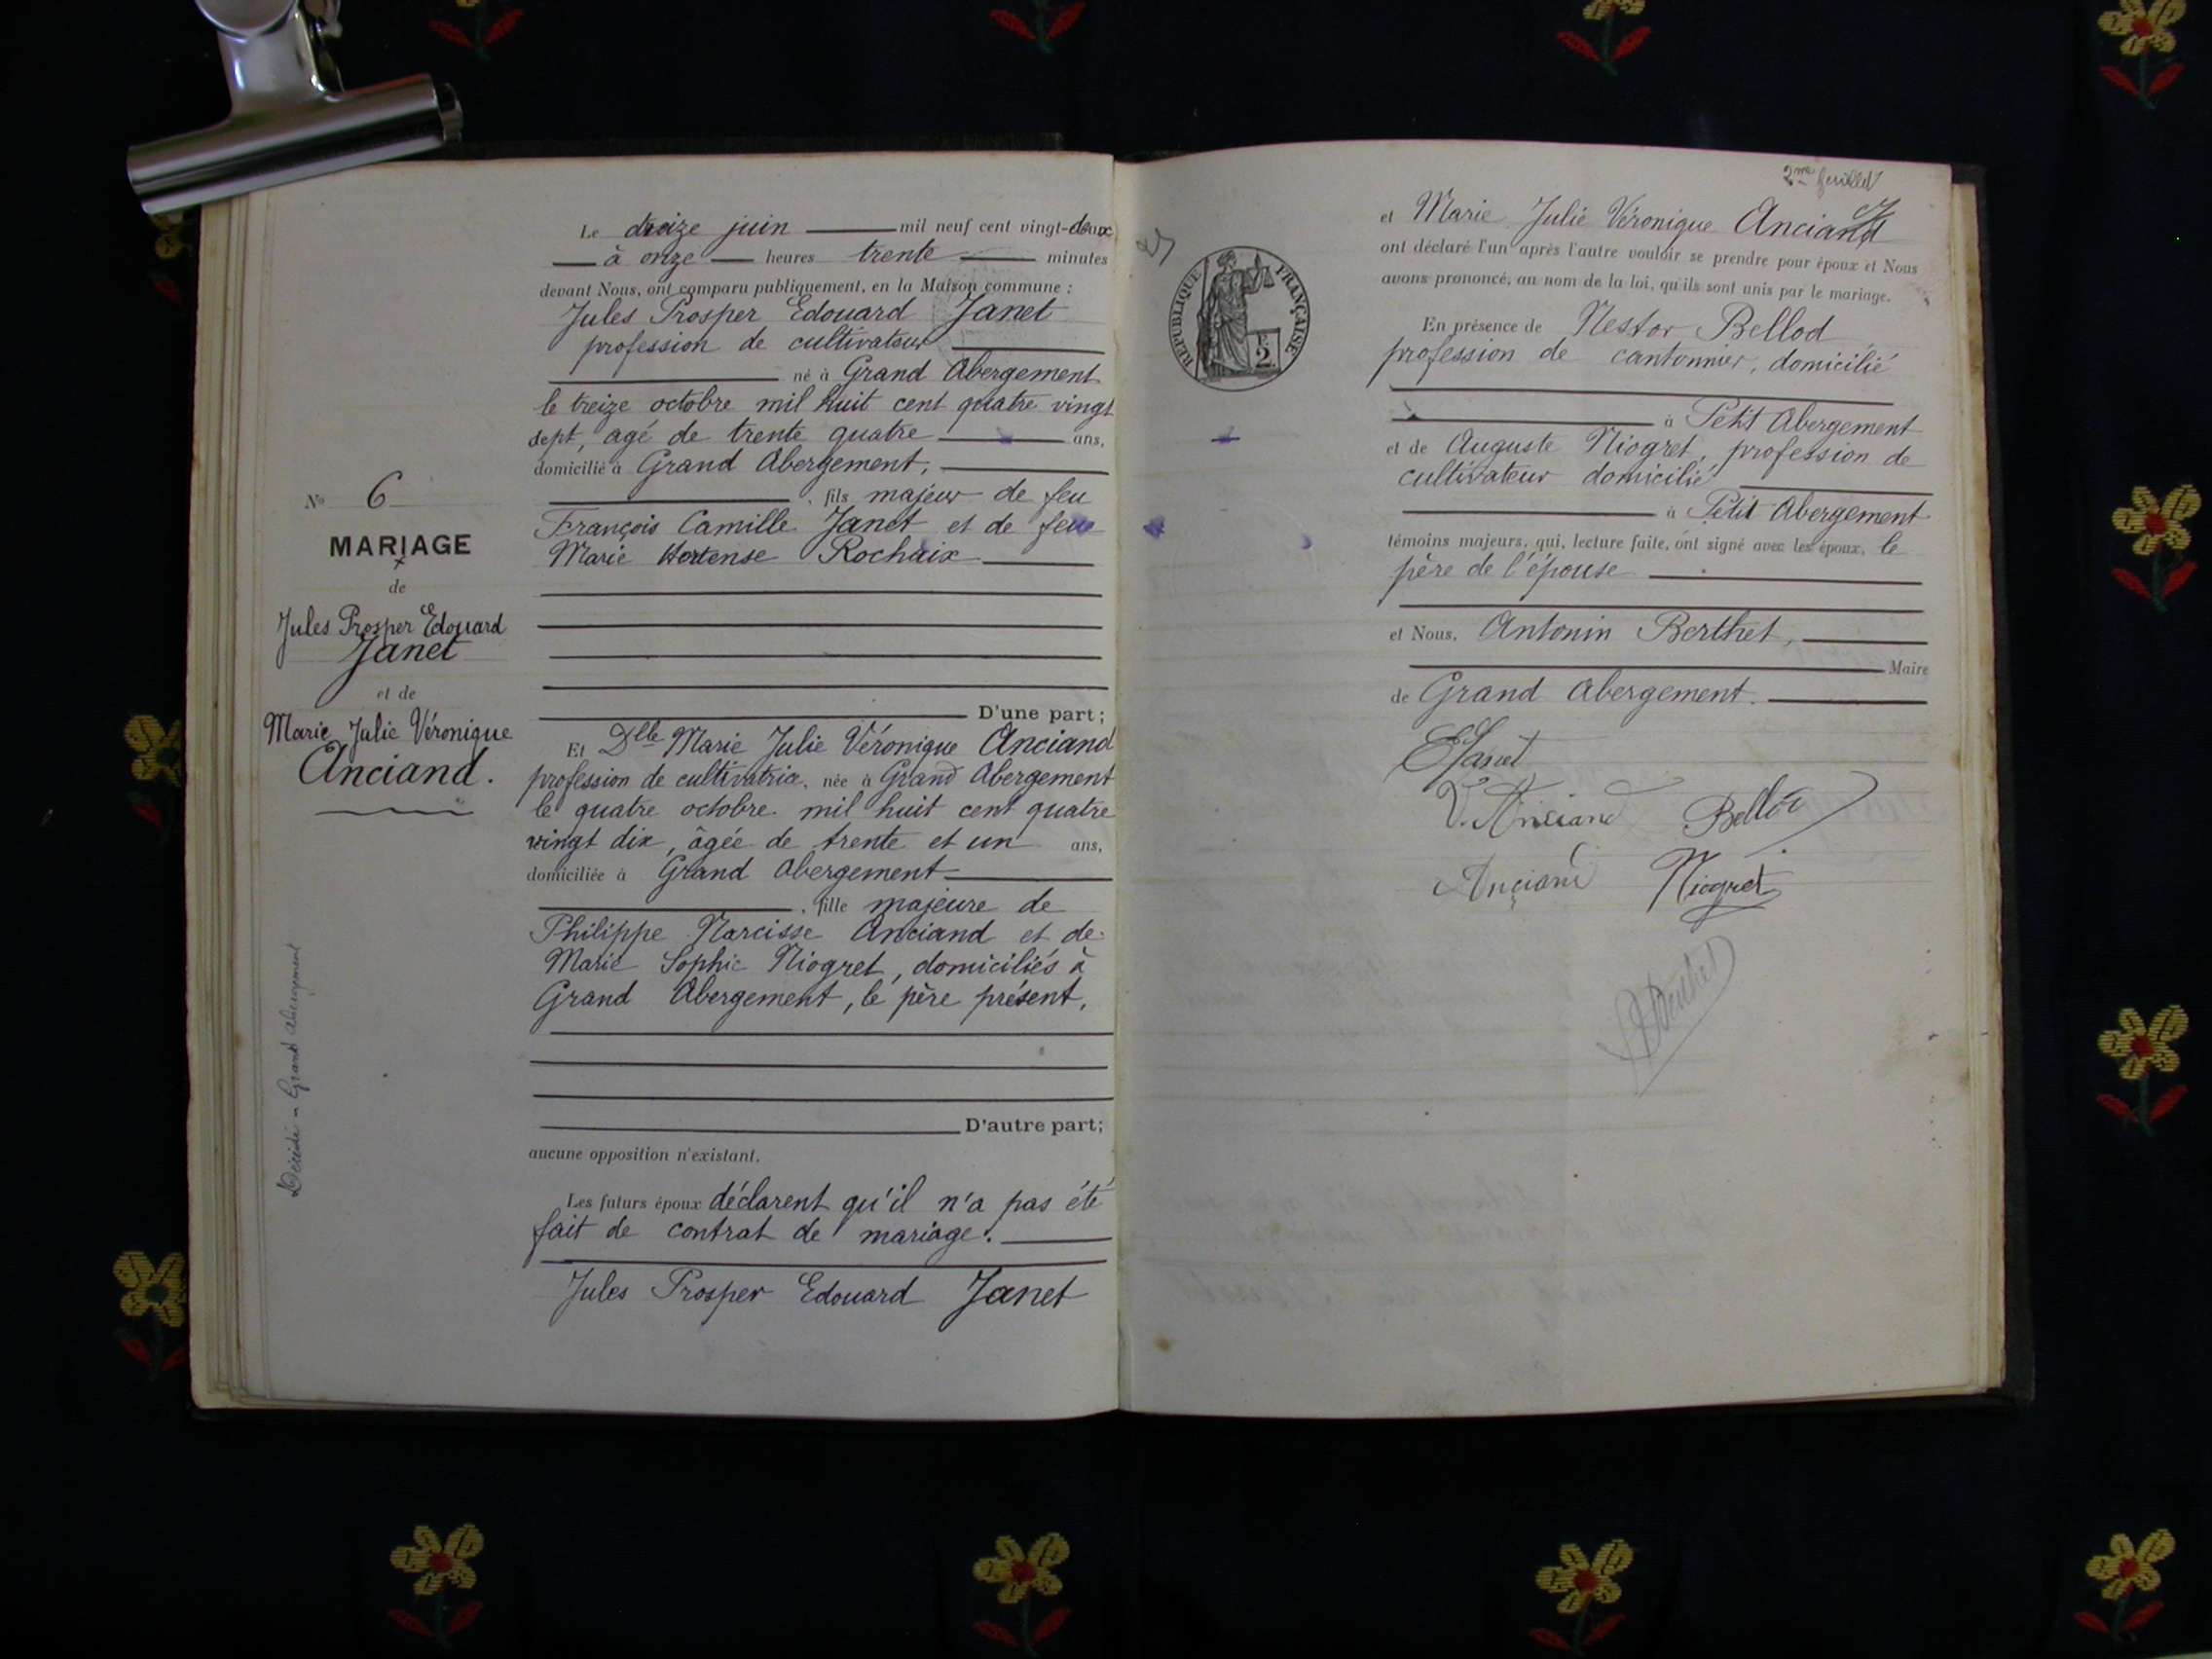 N° 6
MARIAGE
de
Jules Prosper Edouard
Janet
et de
Marie Julie Véronique
Anciand.
Décédé - Grand Abergement
Le treize juin mil neuf cent vingt-deux
à onze heures trente minutes
devant Nous, ont comparu publiquement, en la Maison commune :
Jules Prosper Edouard Janet
profession de cultivateur
né à Grand Abergement
le treize octobre mil huit cent quatre vingt
sept, agé de trente quatre ans,
domicilié à Grand Abergement,
, fils majeur de feu
François Camille Janet et de feue
Marie Hortense Rochaix
D'une part ;
Et Dlle Marie Julie Véronique Anciand
profession de cultivatrice, née à Grand Abergement
le quatre octobre mil huit cent quatre
vingt dix, âgée de trente et un ans,
domiciliée à Grand Abergement
, fille majeure de
Philippe Narcisse Anciand et de
Marie Sophie Niogret, domiciliés à
Grand Abergement, le père présent,
D'autre part ;
aucune opposition n'existant.
Les futurs époux déclarent qu'il n'a pas été
fait de contrat de mariage.
Jules Prosper Edouard Janet
2me feuillet
RÉPUBLIQUE FRANÇAISE
2
et Marie Julie Véronique Anciand
ont déclaré l'un après l'autre vouloir se prendre pour époux et Nous
avons prononcé, au nom de la loi, qu'ils sont unis par le mariage.
En présence de Nestor Bellod
profession de cantonnier, domicilié
à Petit Abergement
et de Auguste Niogret, profession de
cultivateur domicilié
à Petit Abergement
témoins majeurs, qui, lecture faite, ont signé avec les époux, le
père de l'épouse
et Nous, Antonin Berthet,
Maire
de Grand Abergement.
E Janet
V. Anciand Bellod
Anciand Niogret
A Berthet